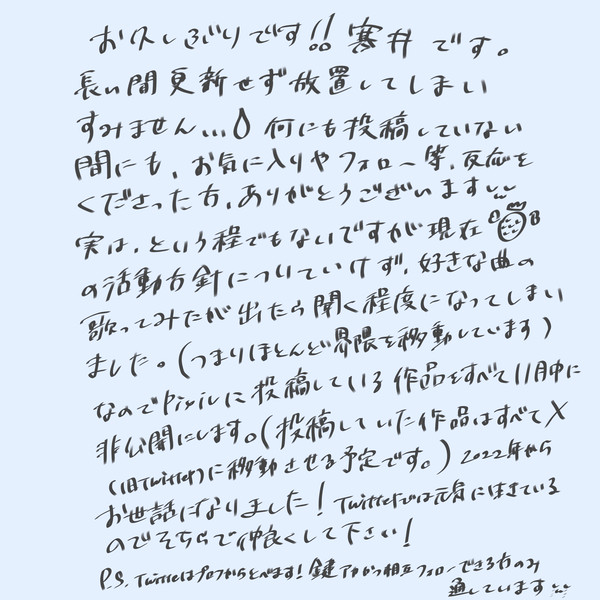 お久しぶりです!! 寒井 です。
長い間更新せず放置してしまい
すみません... 何にも投稿していない
間にも、お気に入りやフォロー等、反応を
くださった方、ありがとうございます
実は、という程でもないですが現在
の活動方針についていけず、好きな曲の
歌ってみたが出たら聞く程度になってしまい
ました。(つまりほとんど界隈を移動しています)
なのでpixivに投稿している作品をすべて11月中に
非公開にします。(投稿していた作品はすべてX
(旧Twitter)に移動させる予定です。) 2022年から
お世話になりました! Twitterでは元気に生きている
のでそちらで仲良くして下さい!
P.S. Twitterはプロフからとべます! 鍵アカかつ相互フォローできる方のみ
通しています